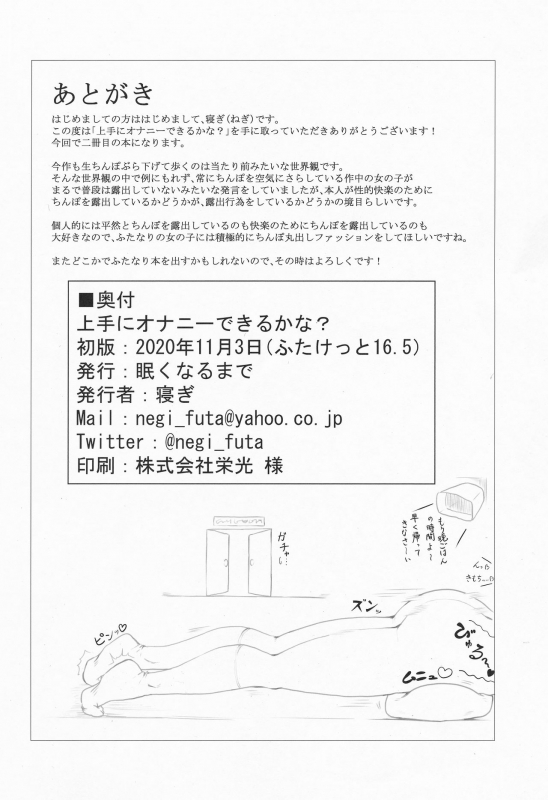 あとがき
はじめましての方ははじめまして、寝ぎ(ねぎ)です。
この度は「上手にオナニーできるかな？」を手に取っていただきありがとうございます！
今回で二冊目の本になります。
今作も生ちんぽぶら下げて歩くのは当たり前みたいな世界観です。
そんな世界観の中で例にもれず、常にちんぽを空気にさらしている作中の女の子が
まるで普段は露出していないみたいな発言をしていましたが、本人が性的快楽のために
ちんぽを露出しているかどうかが、露出行為をしているかどうかの境目らしいです。
個人的には平然とちんぽを露出しているのも快楽のためにちんぽを露出しているのも
大好きなので、ふたなりの女の子には積極的にちんぽ丸出しファッションをしてほしいですね。
またどこかでふたなり本を出すかもしれないので、その時はよろしくです！
■奥付
上手にオナニーできるかな？
初版：2020年11月3日(ふたけっと16.5)
発行：眠くなるまで
発行者：寝ぎ
Mail：negi_futa@yahoo.co.jp
Twitter：@negi_futa
印刷：株式会社栄光 様
もう晩ごはん
の時間よ〜
早く帰って
きなさ〜い
ガチャ…
んっ
きもち…
ズンッ
ピンッ♡
びゅる〜
ムニュ♡